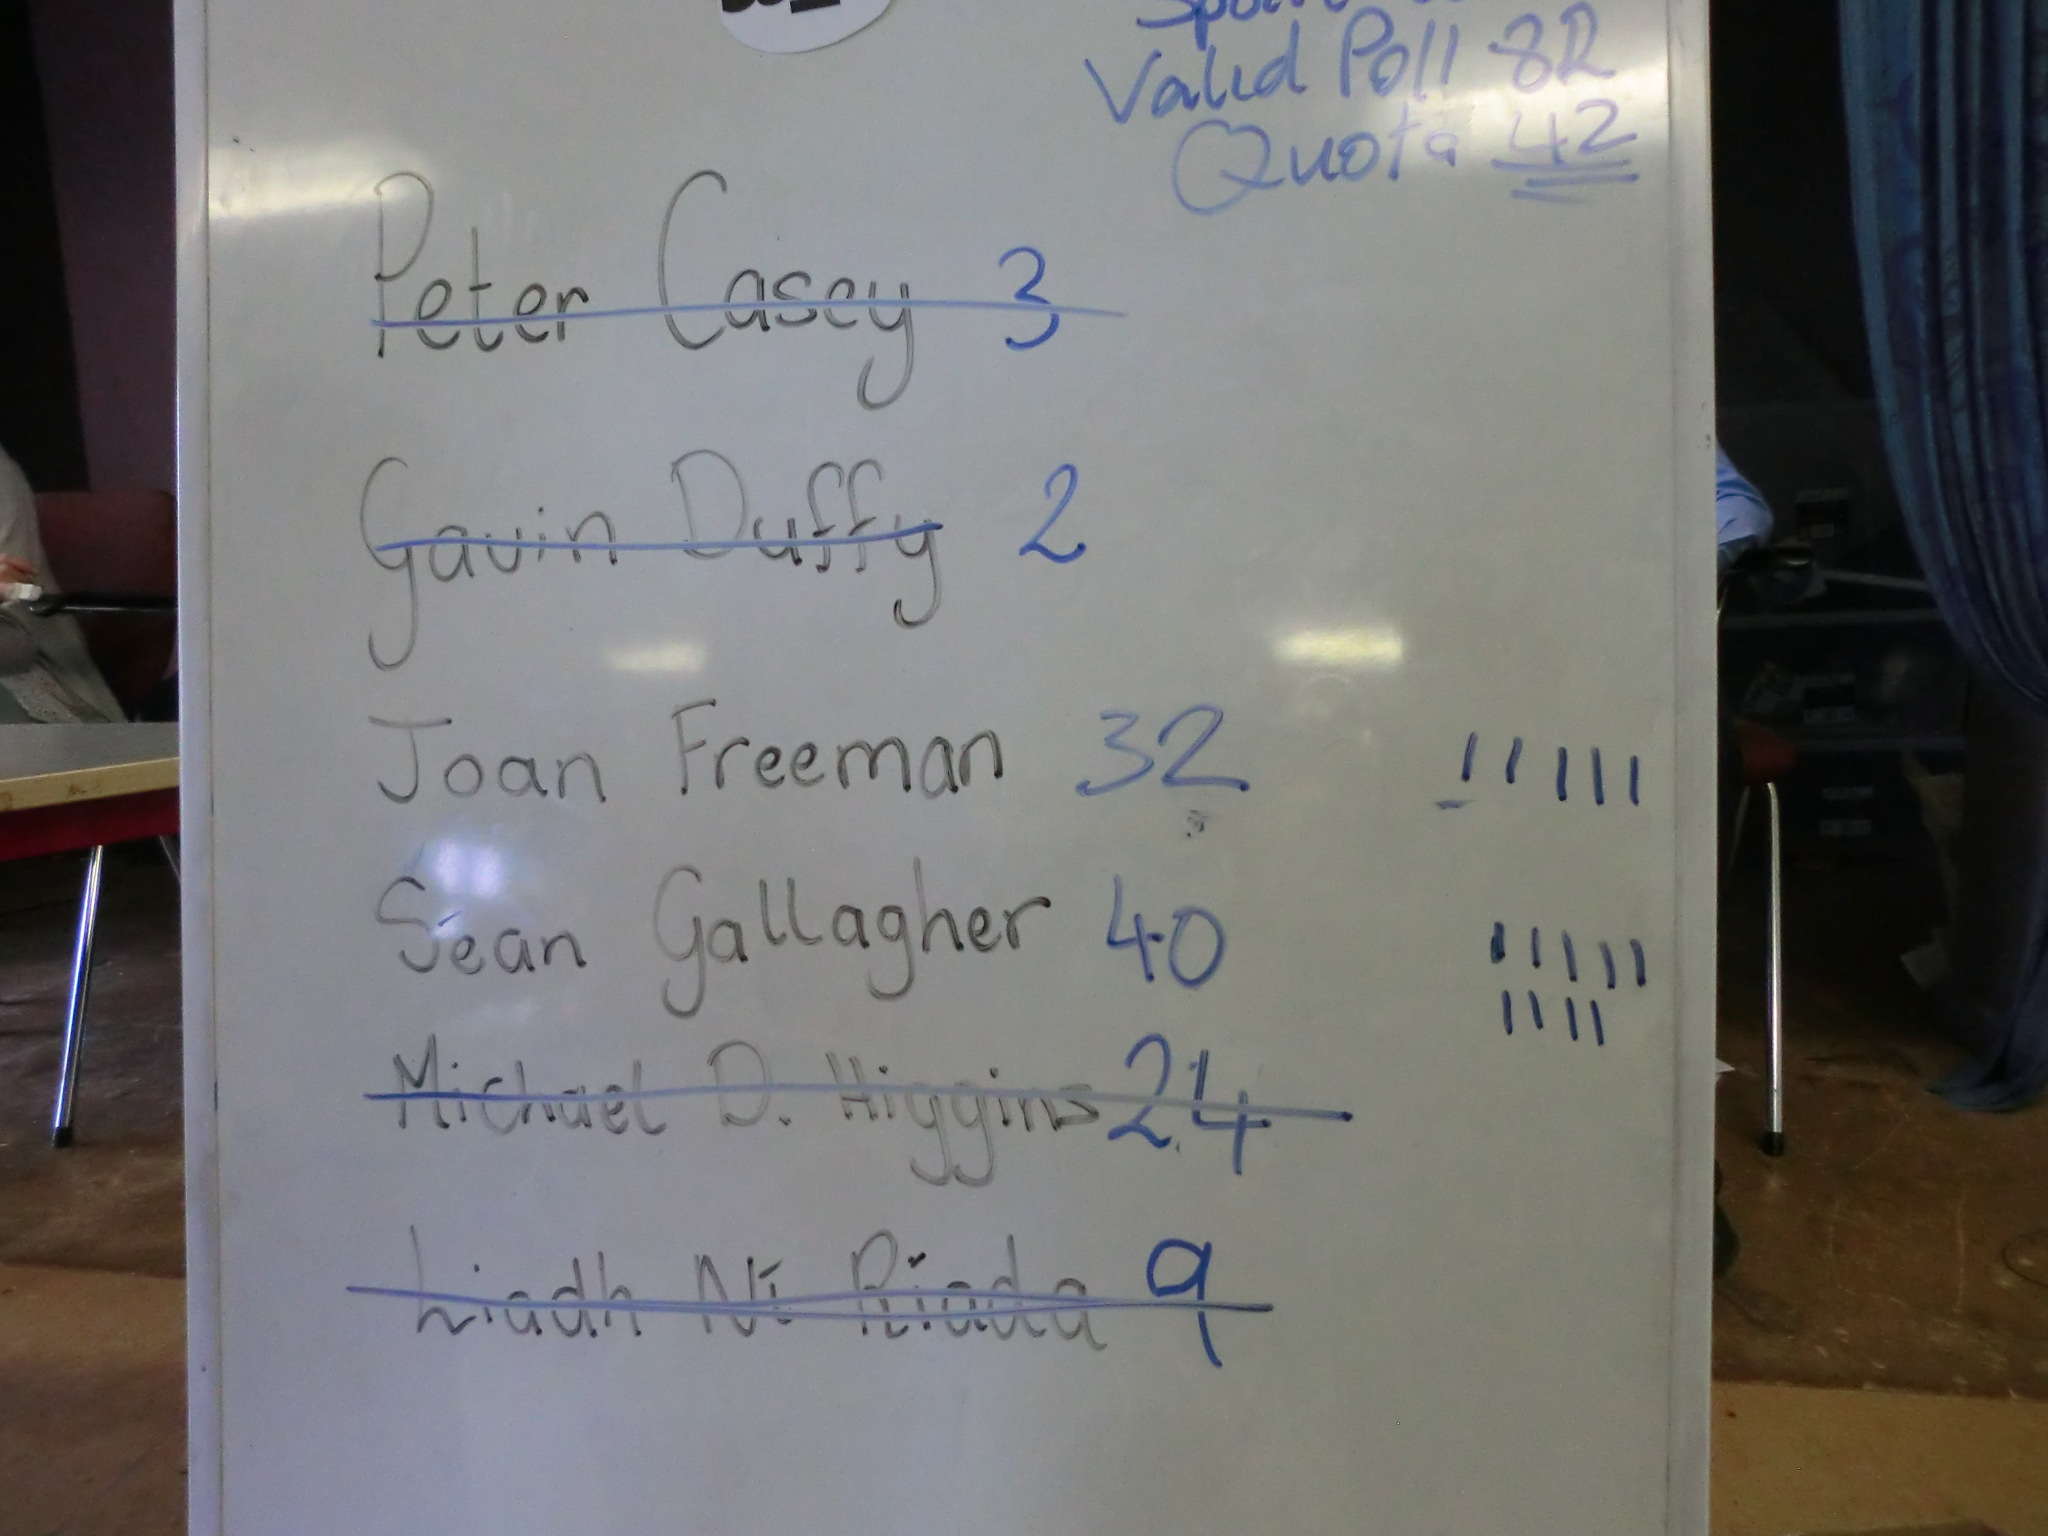 Valid Poll 82
Quota 42
Peter Casey 3
Gavin Duffy 2
Joan Freeman 32
Séan Gallagher 40
Michael D. Higgins 24
Liadh Ní Riada 9